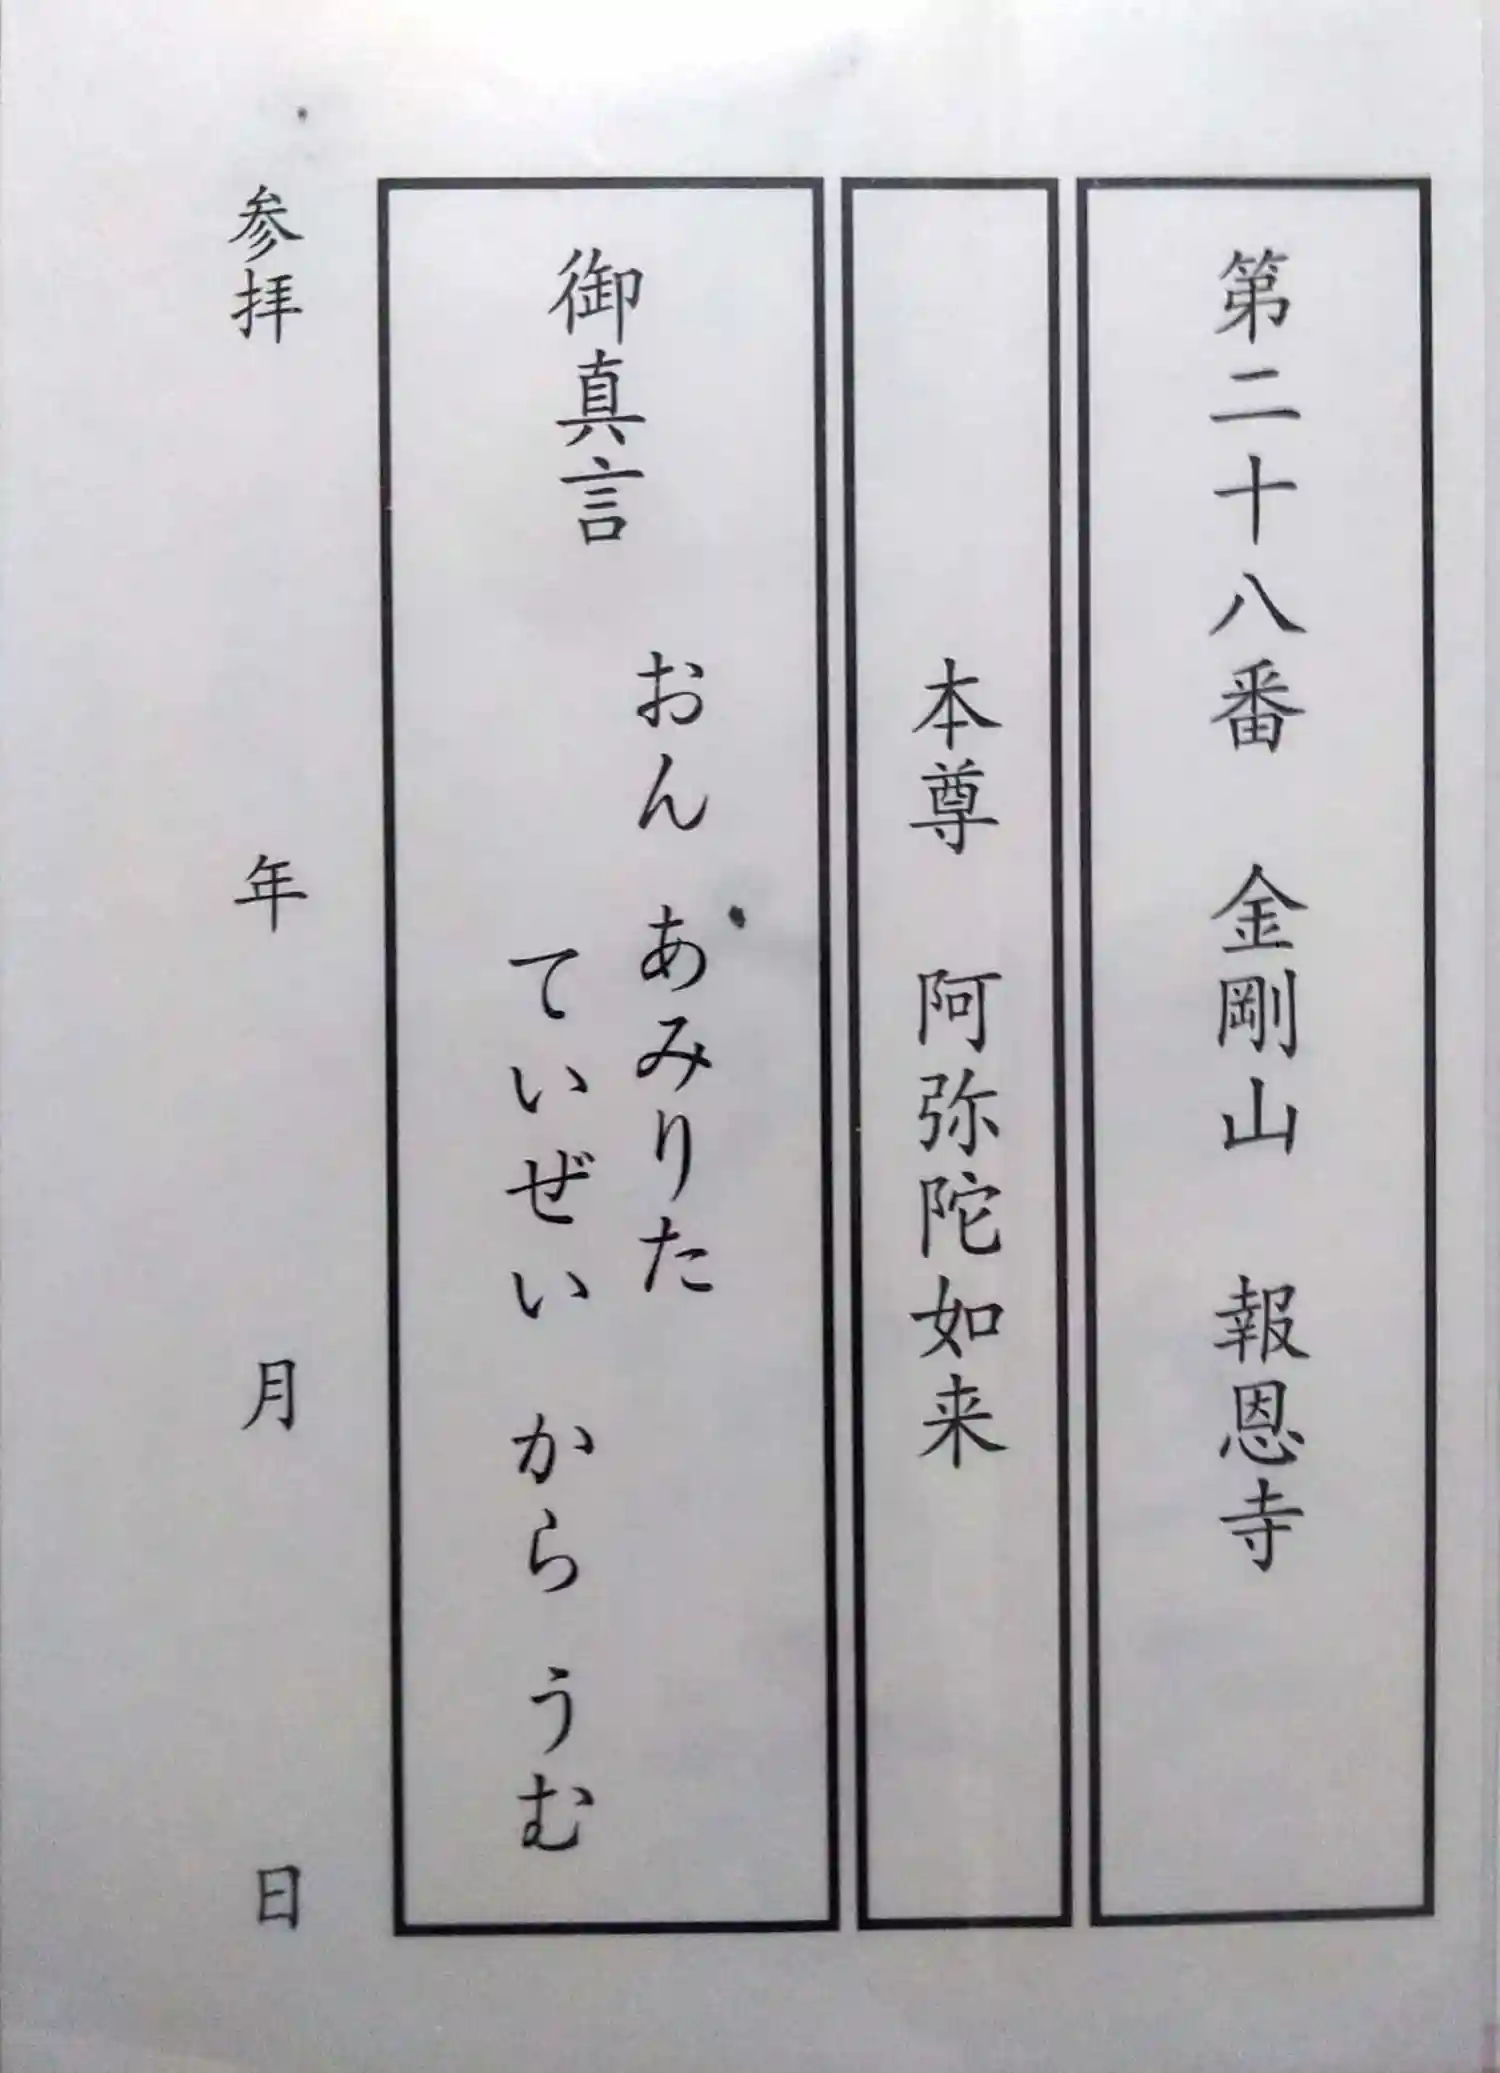 第二十八番　金剛山　報恩寺
本尊　阿弥陀如来
御真言　おん あみりた
ていぜい から うむ
参拝　年　月　日